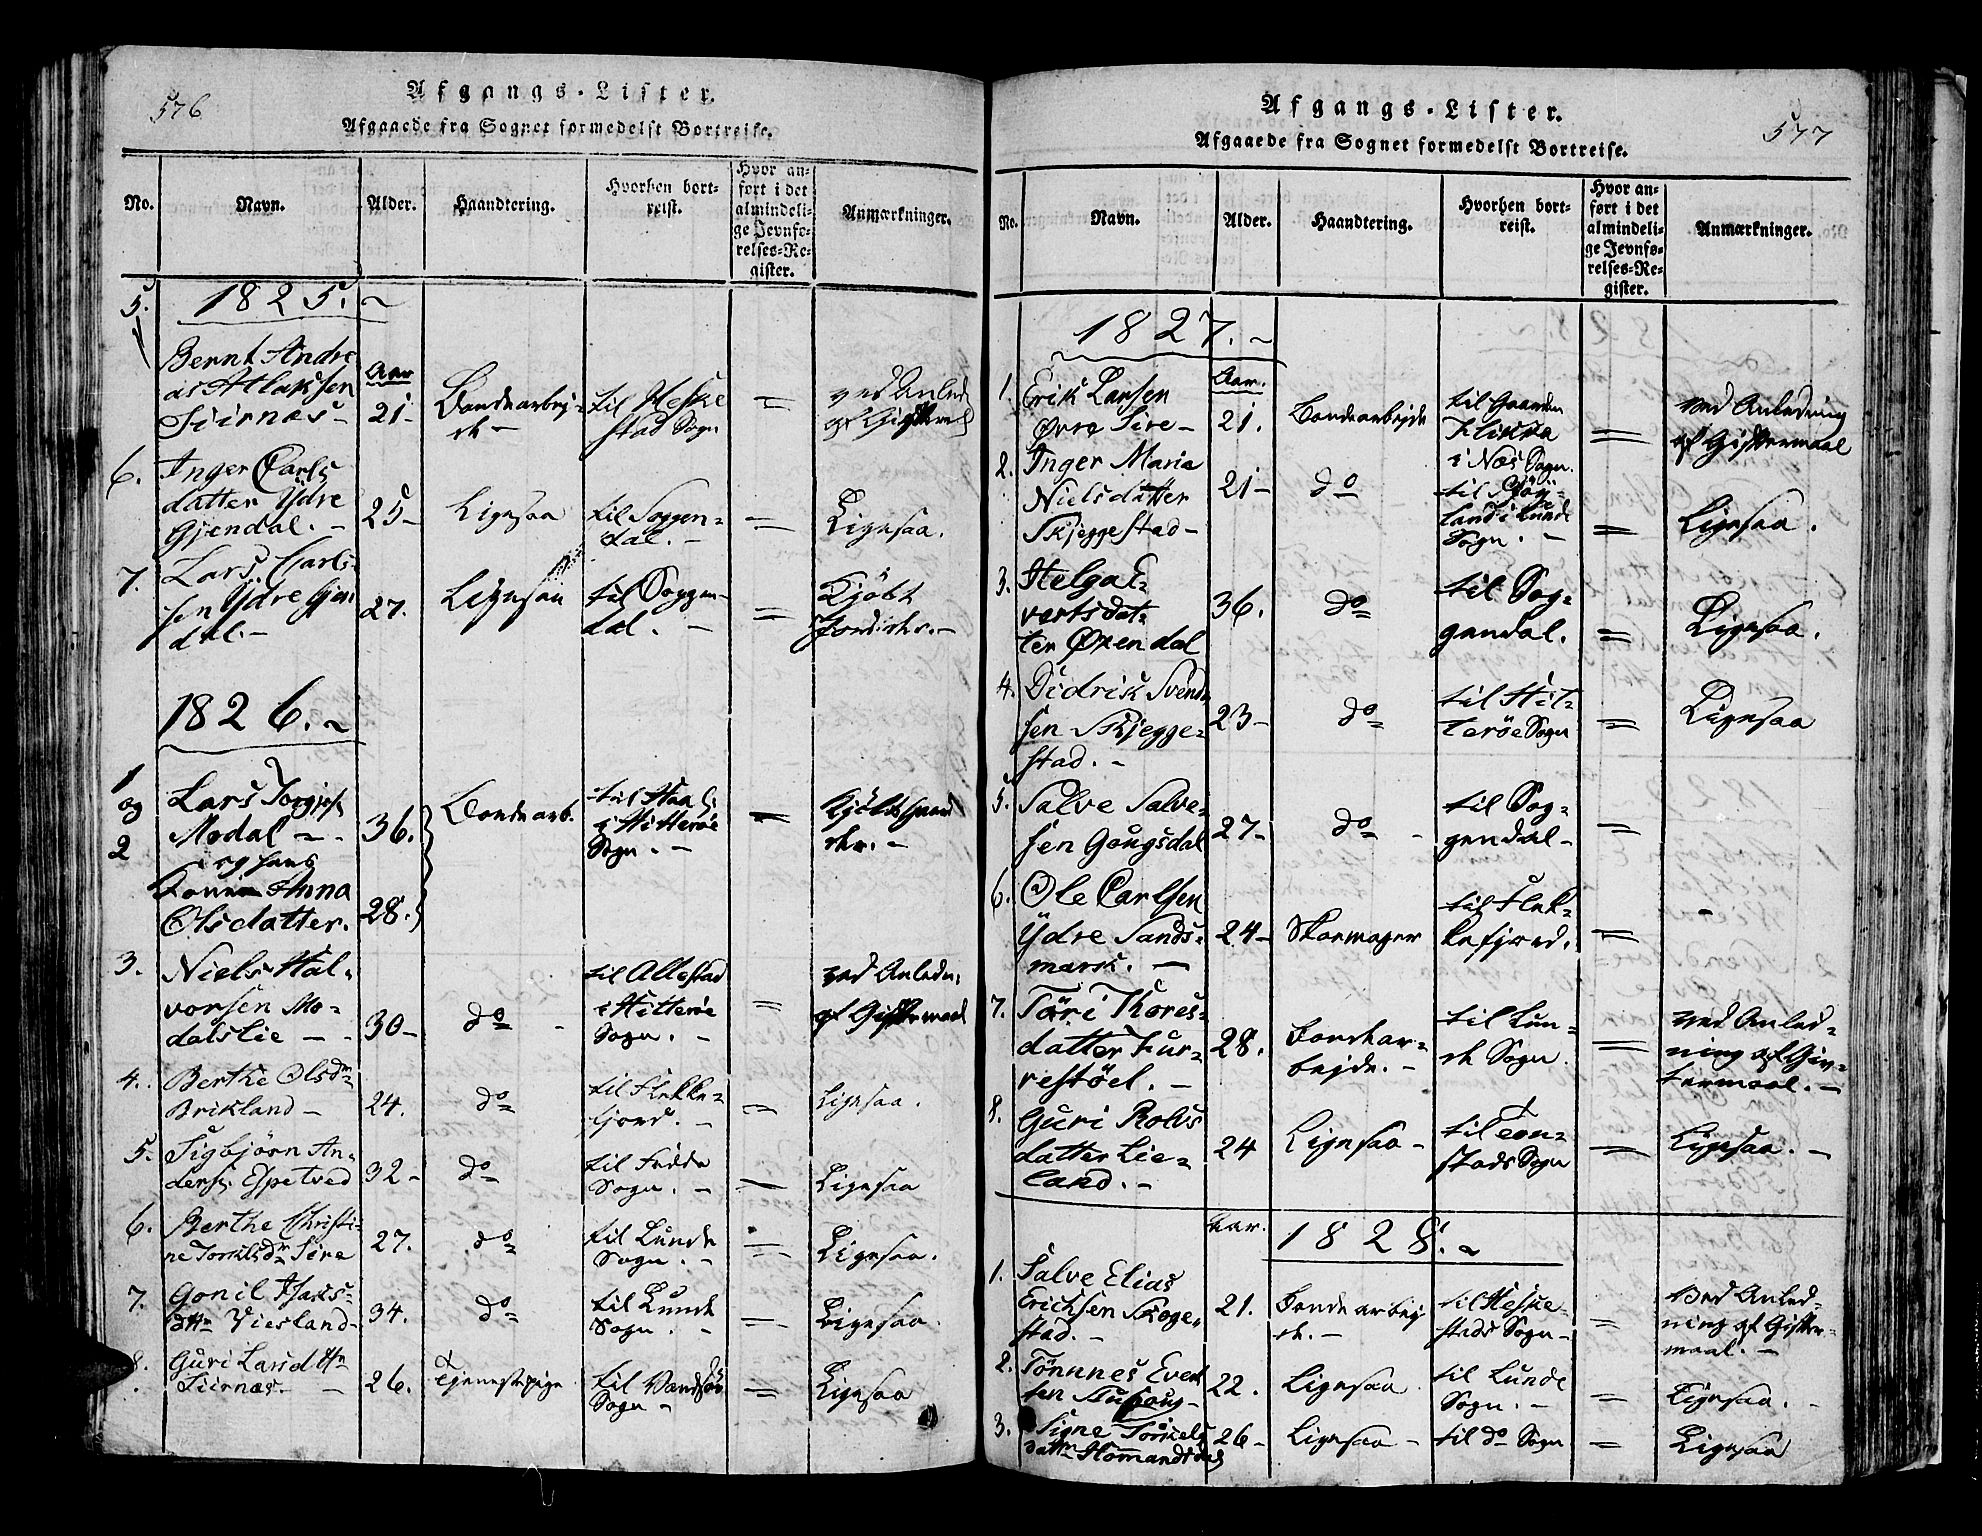 576
Afgangs-Lister.
Afgaaede fra Sognet formedelst Bortreise.
No.
Navn.
Alder.
Haandtering.
Hvorhen bort-
reist.
Hvor an-
ført i det
almindeli-
ge Jevnfø-
relses-Re-
gister.
Anmærkninger.
1825.
5.
Bernt Andre
as Atlaksen
Siirnæs -
Aar
21 -
Bondearbej-
de -
til Heske
stad Sogn
=
ved Anled
af Gifterm
6.
Inger Carls
datter Ydre
Gjendal. -
25 -
Ligesaa
til Soggen-
dal. -
=
Ligesaa.
7.
Lars Carls-
sen Ydre Gjen
dal. -
27.
Ligesaa
til Soggen-
dal. -
=
Kjöbt
Jordisk. -
1826.
1
og
2
Lars Torgjes
Modal -
og hans
Kone Anna
Olsdatter.
36.
28.
Bondearb.
til Haa
i Hitteröe
Sogn. -
=
Kjöbt Gaard
3.
Niels Hal-
vorsen Mo-
dalslie -
30 -
do
til Allestad
i Hitteröe
Sogn. -
=
ved Anledn.
af Giftermaal
4.
Berthe Olsdr
Brikland -
24.
do
til Flekke-
fjord. -
=
Ligesaa.
5.
Sigbjörn An-
ders. Espetved
32 -
do
til Fedde
Sogn. -
=
Ligesaa
6.
Berthe Christi-
ne Torkilsdr Sire
27.
do
til Lunde
Sogn. -
=
Ligesaa.
7.
Gonil Isaks-
dttr Viesland -
34.
do
til Lunde
Sogn. -
=
Ligesaa.
8.
Guri Larsdttr
Siirnæs. -
26.
Tjenestepige
til
Sogn -
=
Ligesaa
577
Afgangs-Lister.
Afgaaede fra Sognet formedelst Bortreise.
No.
Navn.
Alder.
Haandtering.
Hvorhen bort-
reist.
Hvor an-
ført i det
almindeli-
ge Jevnfø-
relses-Re-
gister.
Anmærkninger.
1827.
1.
Erik Larsen
Övre Sire -
Aar.
21.
Bondearbejde
til Gaarden
Flikka
i Næs Sogn.
=
ved Anledning
af Giftermaal
2.
Inger Maria
Nielsdatter
Skjeggestad -
21 -
do
til
land i Lunde
Sogn. -
=
Ligesaa.
3.
Helga E-
vertsdat-
ter Öxendal
36.
do
til Sog-
gendal.
=
Ligesaa.
4.
Didrik Svend-
sen Skjegge-
stad. -
23 -
do
til Hit-
teröe Sogn
=
Ligesaa
5.
Salve Salve-
sen Gougsdal
27 -
do -
til Sog-
gendal -
=
6.
Ole Carlsen
Ydre Sands-
mark. -
24 -
Skoemager
til Flek-
kefjord.
=
-
7.
Töri Thores-
datter Fur-
restöel. -
28.
Bondear-
bejde. -
til Lun-
de Sogn.
=
ved Anled-
ning af Gif-
termaal. -
8.
Guri Rolvs
datter Lie-
land. -
24
Ligesaa -
til
stads Sogn
=
Ligesaa. -
1828.
Aar.
1.
Salve Elias
Erichsen Skoge-
stad. -
21.
Bondearbej
de. -
til Heske-
stads Sogn -
=
Ved Anled-
ning af Gifter-
maal. -
2.
Tönnnes Evert
sen
22.
Ligesaa
til Lunde
Sogn. -
=
Ligesaa. -
3.
Signe Torkels
dattr
26 -
Ligesaa -
til do Sogn
=
Ligesaa